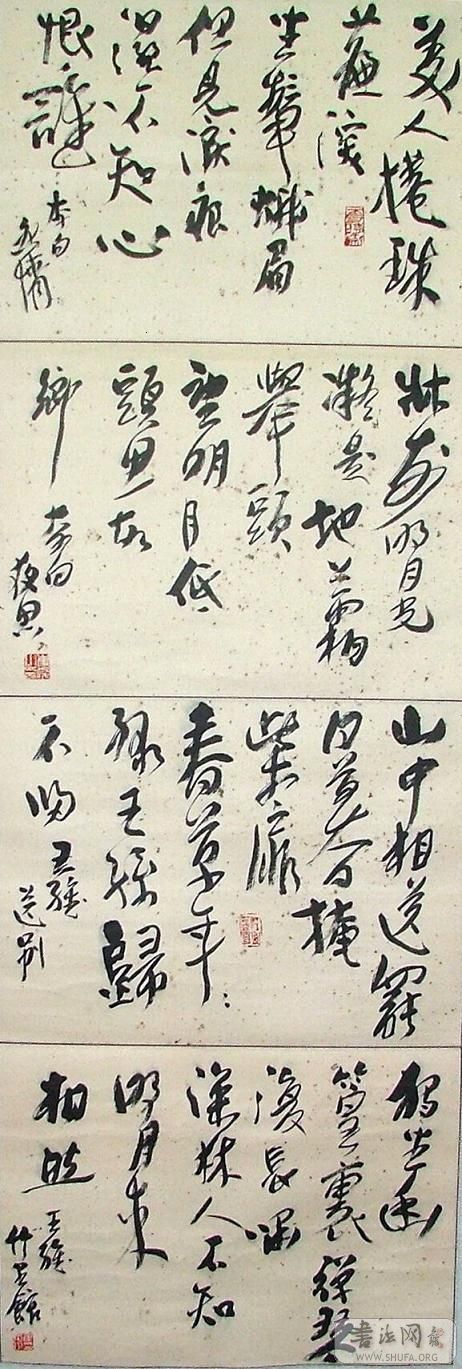 美人捲珠
簾深
坐顰蛾眉
但見淚痕
濕不知心
恨誰
李白
怨情
牀前明月光
疑是地上霜
舉頭
望明月低
頭思故
鄉
李白
夜思
山中相送罷
日暮掩
柴扉
春草年〻
綠王孫歸
不歸
王維
送別
獨坐幽
篁裏彈琴
復長嘯
深林人不知
明月來
相照
王維
竹里館
書法网
WWW.SHUFA.ORG